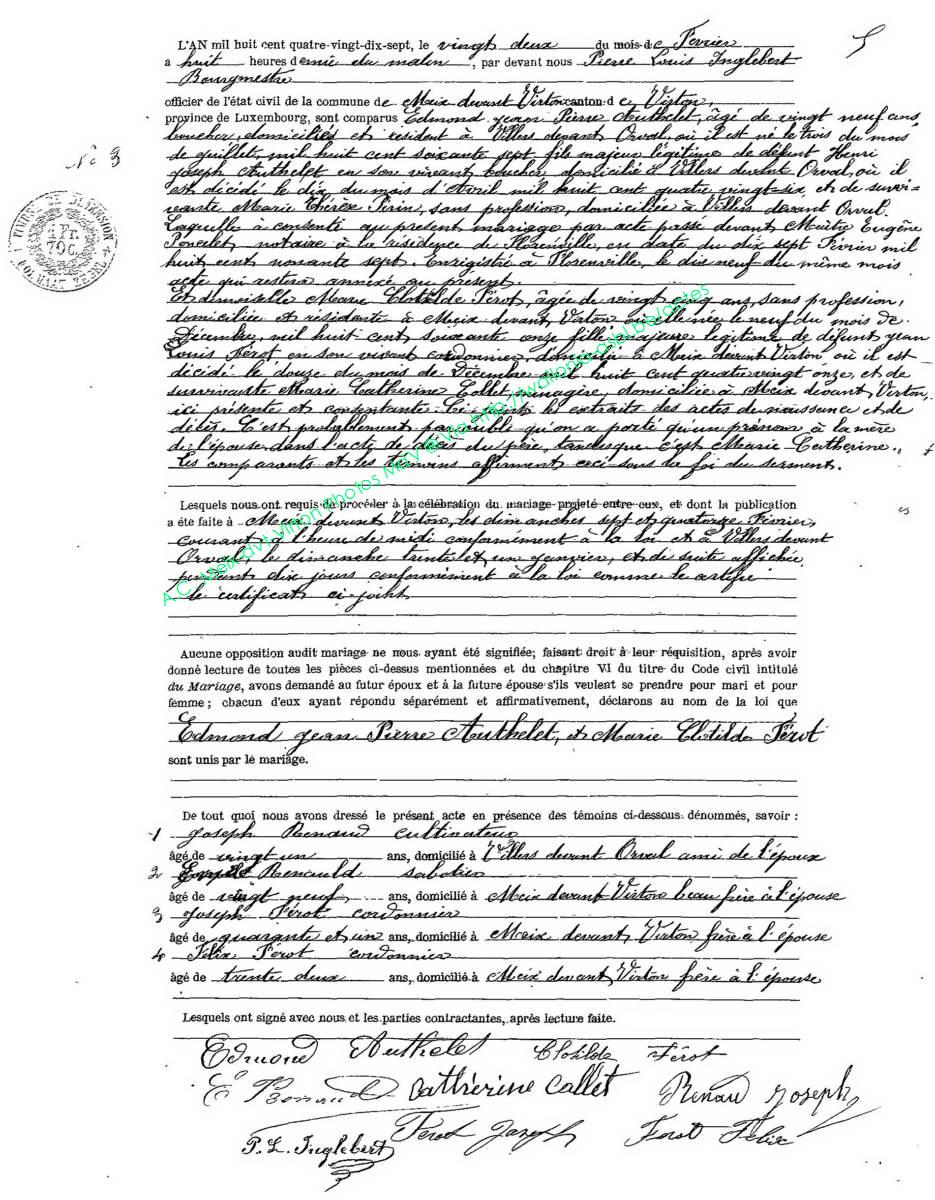 5
L'AN mil huit cent quatre-vingt-dix-sept, le vingt deux du mois de Février
a huit heures demie du matin, par devant nous Pierre Louis Inglebert
Bourgmestre
officier de l'état civil de la commune de Meix devant Virton canton de Virton,
province de Luxembourg, sont comparus Edmond Jean Pierre Authelet, âgé de vingt neuf ans
boucher, domiciliés et résident à Villers devant Orval, où il est né le trois du mois
No 3
de Juillet mil huit cent soixante sept fils majeur légitime de défunt Henri
Joseph Authelet en son vivant boucher domicilié à Villers devant Orval, où il
est décidé le dix du mois d'Avril mil huit cent quatre vingt-six et de survi-
vante Marie Thérèse Pirin, sans profession, domiciliée à Villers devant Orval.
Laquelle à consenté au présent mariage par acte passé devant Maître Eugène
Poncelet, notaire à la résidence de Florenville, en date du dix sept Février mil
huit cent nonante sept. Enregistré à Florenville, le dix neuf du même mois
acte qui restera annexé au présent.
TIMBRE DE DIMENSION
1 Fr.
70 C.
Et demoiselle Marie Clotilde Férot, âgée de vingt cinq ans, sans profession,
domiciliée et résidante à Meix devant Virton où elle née le neuf du mois de
Décembre, mil huit cent soixante onze fille majeure légitime de défunt Jean
Louis Férot, en son vivant cordonnier, domicilié à Meix devant Virton où il est
décidé le douze du mois de Décembre mil huit cent quatre vingt onze, et de
survivante Marie Catherine Collet, ménagère, domiciliée à Meix devant Virton,
ici présente et consentante. Ci-joints les extraits des actes de naissance et de
décès. C'est probablement par oubli qu'on a porté qu'un prénom à la mère
de l'épouse dans l'acte de décès du père, tandisque c'est Marie Catherine.
Les comparants et les témoins affirment ceci sous la foi du serment.
Lesquels nous ont requis de procéder à la célébration du mariage projeté entre eux, et dont la publication
a été faite à Meix devant Virton, les dimanches sept et quatorze Février,
courant à l'heure de midi conformément à la loi et à Villers devant
Orval, le dimanche trente et un janvier, et de suite affichée
pendant dix jours conformément à la loi comme le certifie
le certificat ci-joint
A.C. Meix-dvt-Virton Photos MdV @ Via http://lwallonia-asbl.be/actes
Aucune opposition audit mariage ne nous ayant été signifiée; faisant droit à leur réquisition, après avoir
donné lecture de toutes les pièces ci-dessus mentionnées et du chapitre VI du titre du Code civil intitulé
du Mariage, avons demandé au futur époux et à la future épouse s'ils veulent se prendre pour mari et pour
femme; chacun d'eux ayant répondu séparément et affirmativement, déclarons au nom de la loi que
Edmond Jean Pierre Authelet, et Marie Clotilde Férot
sont unis par le mariage.
De tout quoi nous avons dressé le présent acte en présence des témoins ci-dessous dénommés, savoir :
1 Joseph Renaud cultivateur
âgé de vingt un ans, domicilié à Villers devant Orval ami de l'époux
2 Renauld sabotier
âgé de vingt neuf ans, domicilié à Meix devant Virton beau frère à l'épouse
3 Joseph Férot cordonnier
âgé de quarante et un ans, domicilié à Meix devant Virton frère à l'épouse
4 Félix Férot cordonnier
âgé de trente deux ans, domicilié à Meix devant Virton frère à l'épouse
Lesquels ont signé avec nous et les parties contractantes, après lecture faite.
Edmond Authelet Clotilde Férot
E Renaud Cathérine Collet Renaud Joseph
P. L. Inglebert Ferot Joseph Ferot Félix